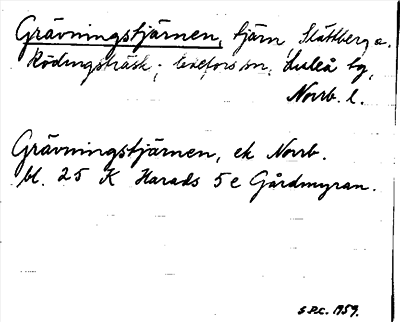 Grävningstjärnen, tjärn, Slättberg o.
Rödingsträsk, Edefors sn, Luleå tg,
Norrb. l.
Grävningstjärnen, ek Norrb.
bl. 25 K Harads 5e Gårdmyran.
S.P.C. 1959.